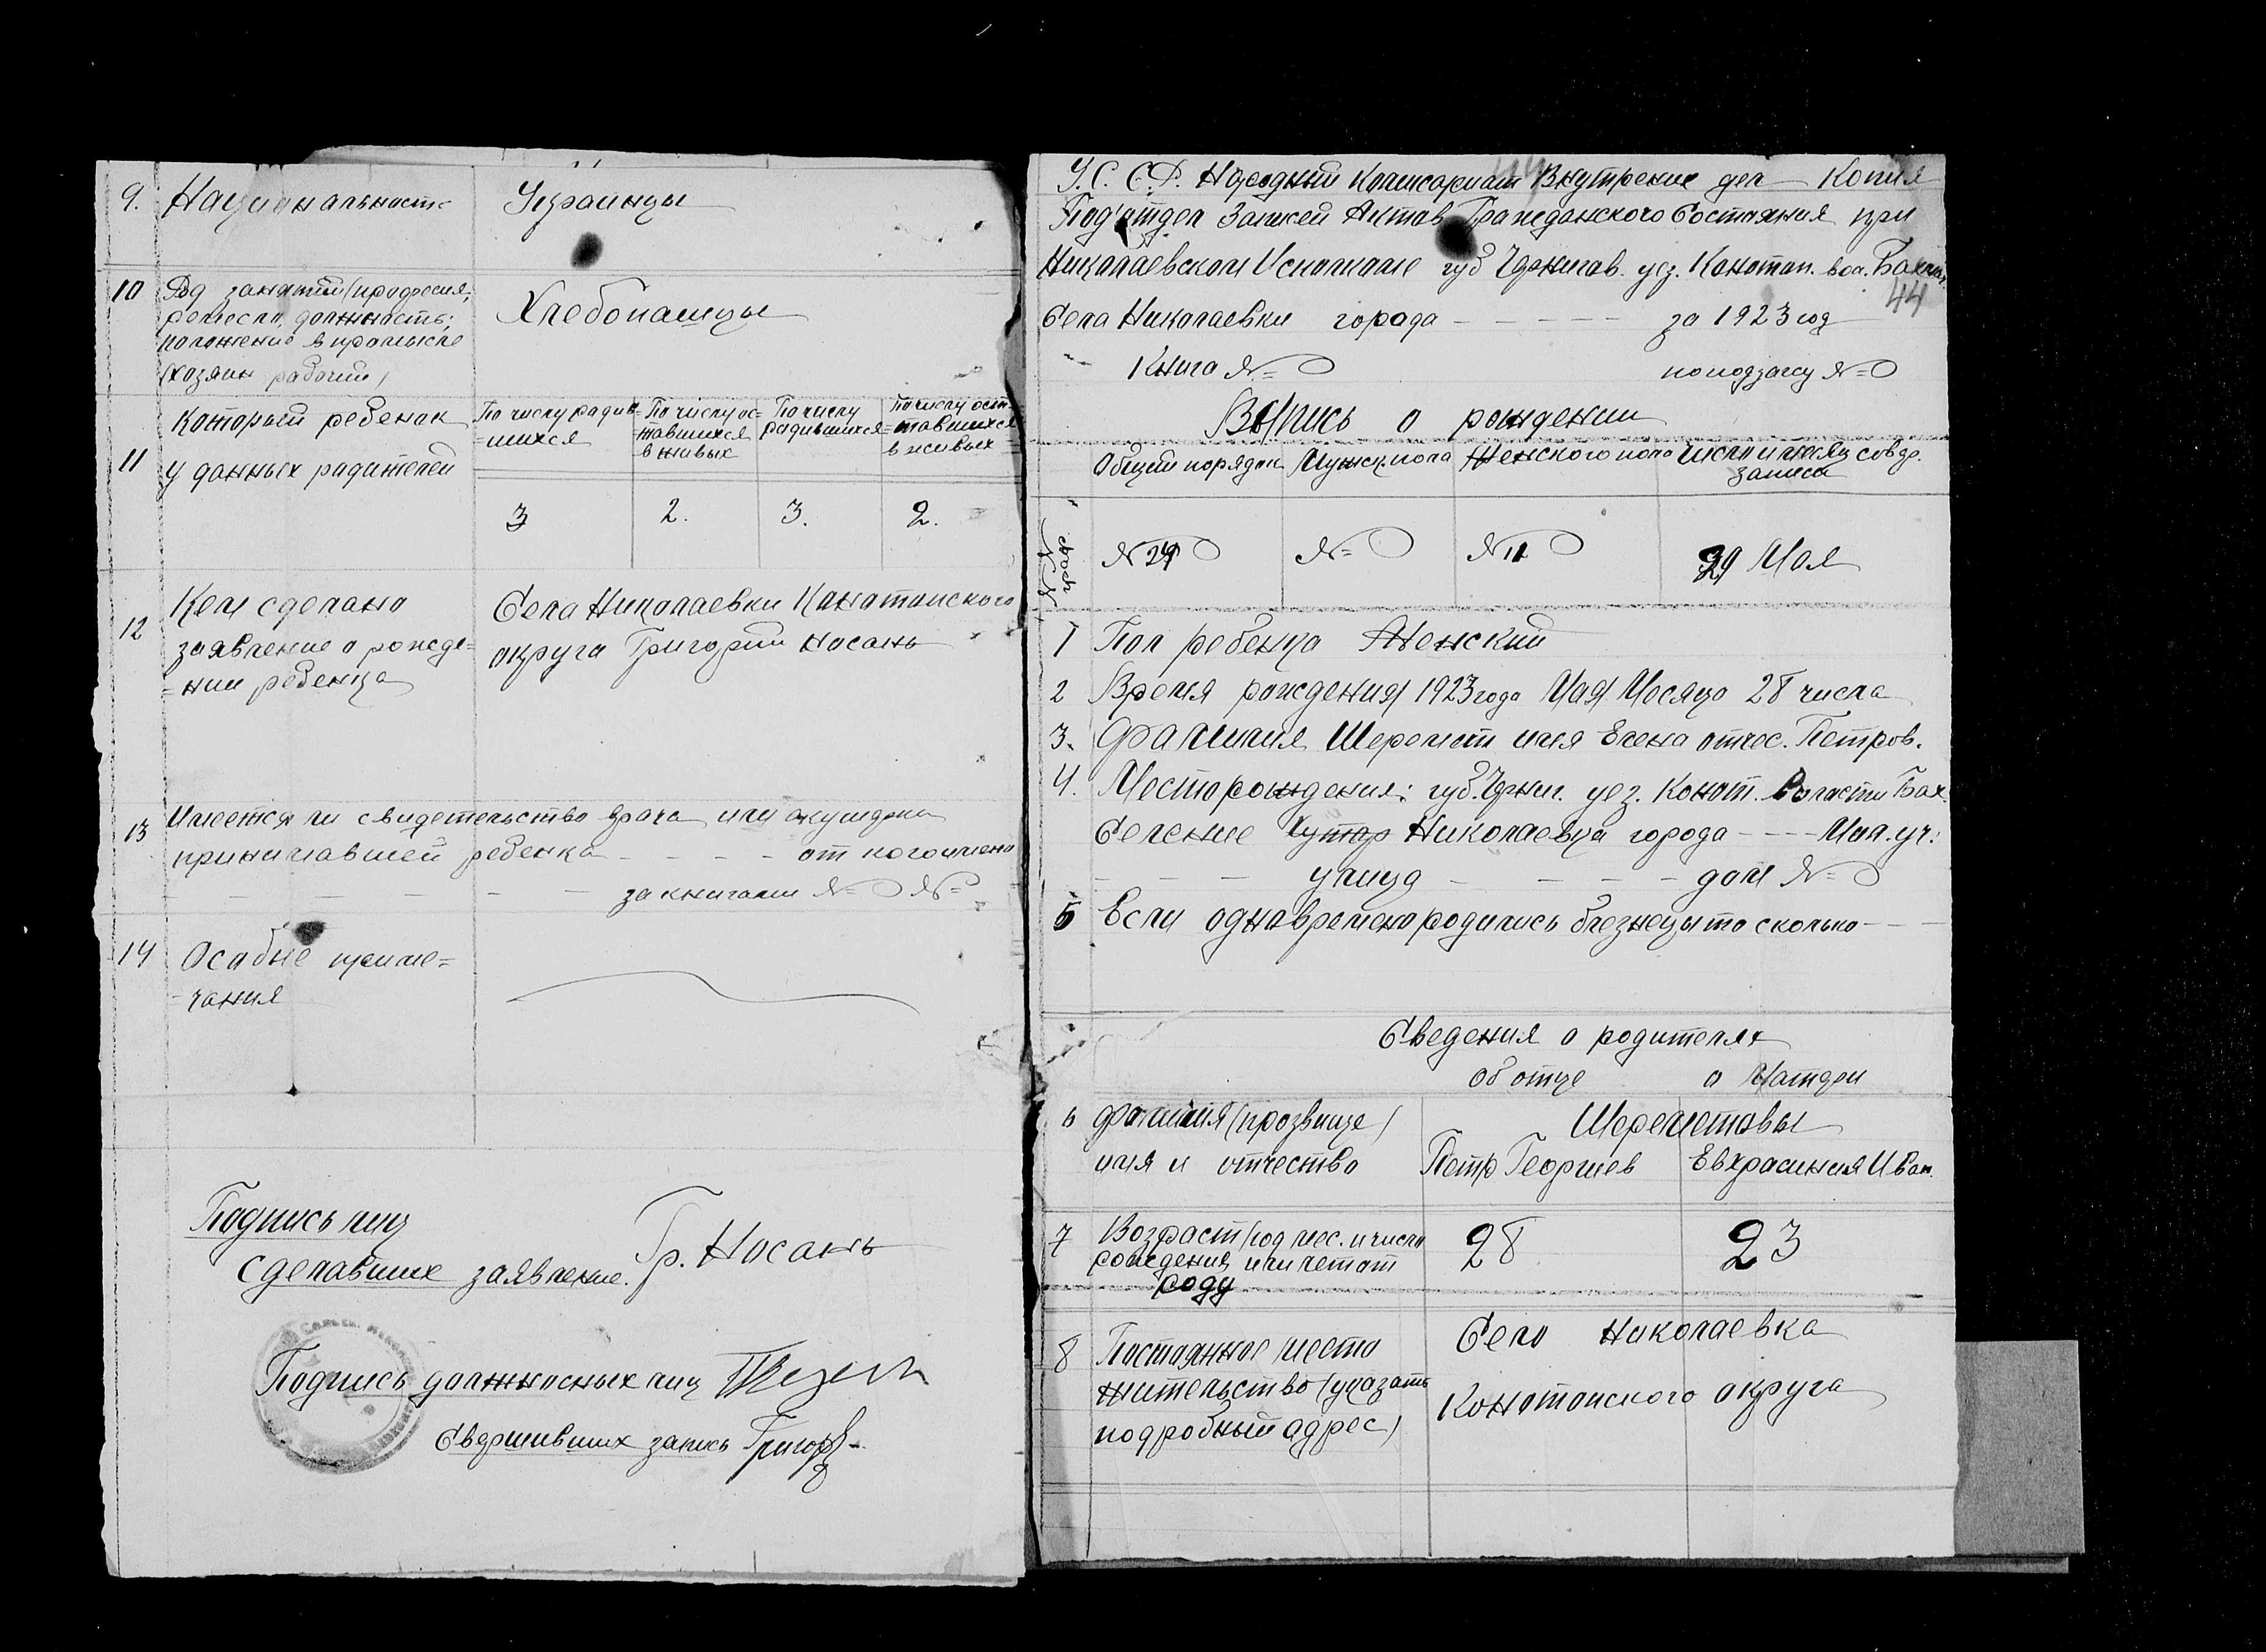 9. Национальность Украинцы
10 Род занятий (професия,
ремесло, должность;
положение в промысле
(хозяин рабочий)
Хлебопашцы
11 Который ребенок
у данных родителей
По числу родив=
=шихся
По числу ос=
=тавшихся
в живых
По числу
родившихся
По числу ост=
=авшихся
в живых
3 2. 3. 2.
12 Кем сделано
заявление о рожде=
=нии ребенка
Села Николаевки Конотопского
округа Григорий Носань
13 Имеется ли свидетельство врача или акушерки
принимавшей ребенка - - - - от кого имено
- - - - - за книгами № №
14 Особые приме=
=чания
Подпись лиц
сделавших заявление. Гр. Носань
Подпись должносных лиц
Свершивших запись
44
У.С.С.Р. Народный Комисариат Внутрених дел Копия
Под'отдел Записей Актов Гражданского Состояния при
Николаевском Исполкоме губ Чернигов. уез. Конотоп. вол. Бахмач.
44
Села Николаевки города - - - - - за 1923 год
Книга № по подзагсу №
Выпись о рождении
Общий порядок Мужск. пола Женского пола Число и месяц совер.
записи
№ 24 № № 11 29 Мая
1 Пол ребенка Женский
2 Время рождения 1923 года Мая Месяца 28 числа
3. Фамилия Шеремет имя Елена отчес. Петров.
4. Место рождения: губ. Черниг. уез. Конот. Волости Бах.
Селение Хутор Николаевка города - - - Мил. уч:
- - - улица - - - - дом №
5 Если одновремено родились близнецы то сколько - -
Сведения о родителях
об отце о Матери
6 фамилия (прозвище)
имя и отчество
Шереметовы
Петр Георгиев Евхрасиния Иван.
7 Возраст (год мес. и число
рождения или летот
роду
28 23
8 Постоянное место
жительство (указать
подробный адрес)
Село Николаевка
Конотопского округа